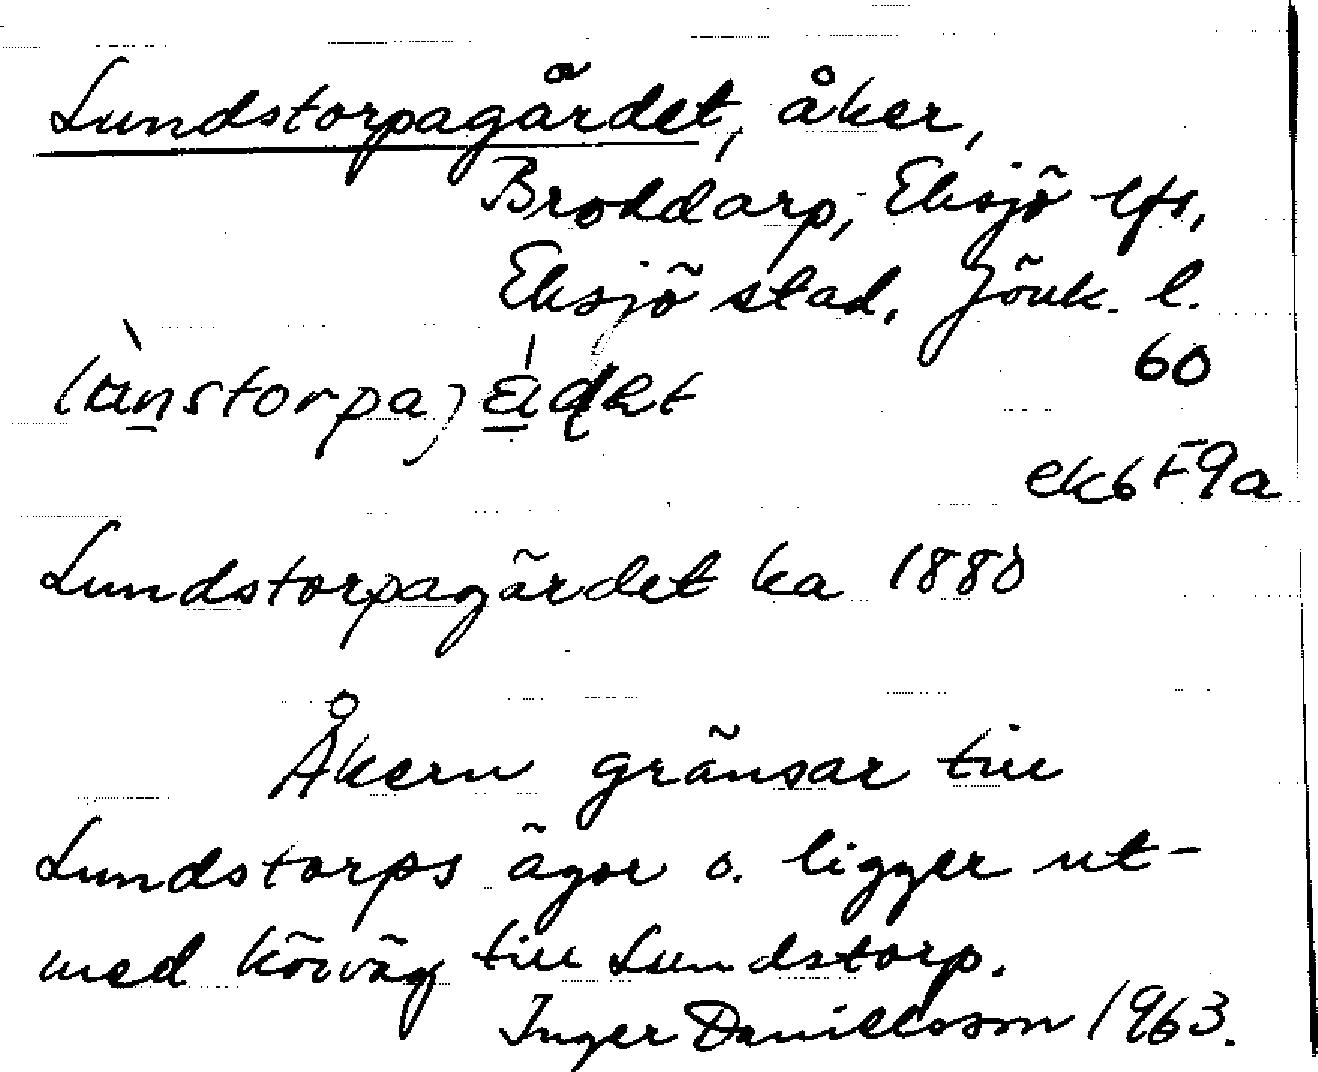 Lundstorpagärdet, åker,
Broddarp, Eksjö lfs,
Eksjö stad, Jönk. l.
60
ekb F9a
Lundstorpagärdet ka 1880
Åkern gränsar till
Lundstorps ägor o. ligger ut-
med körväg till Lundstorp.
Inger Danielsson 1963.